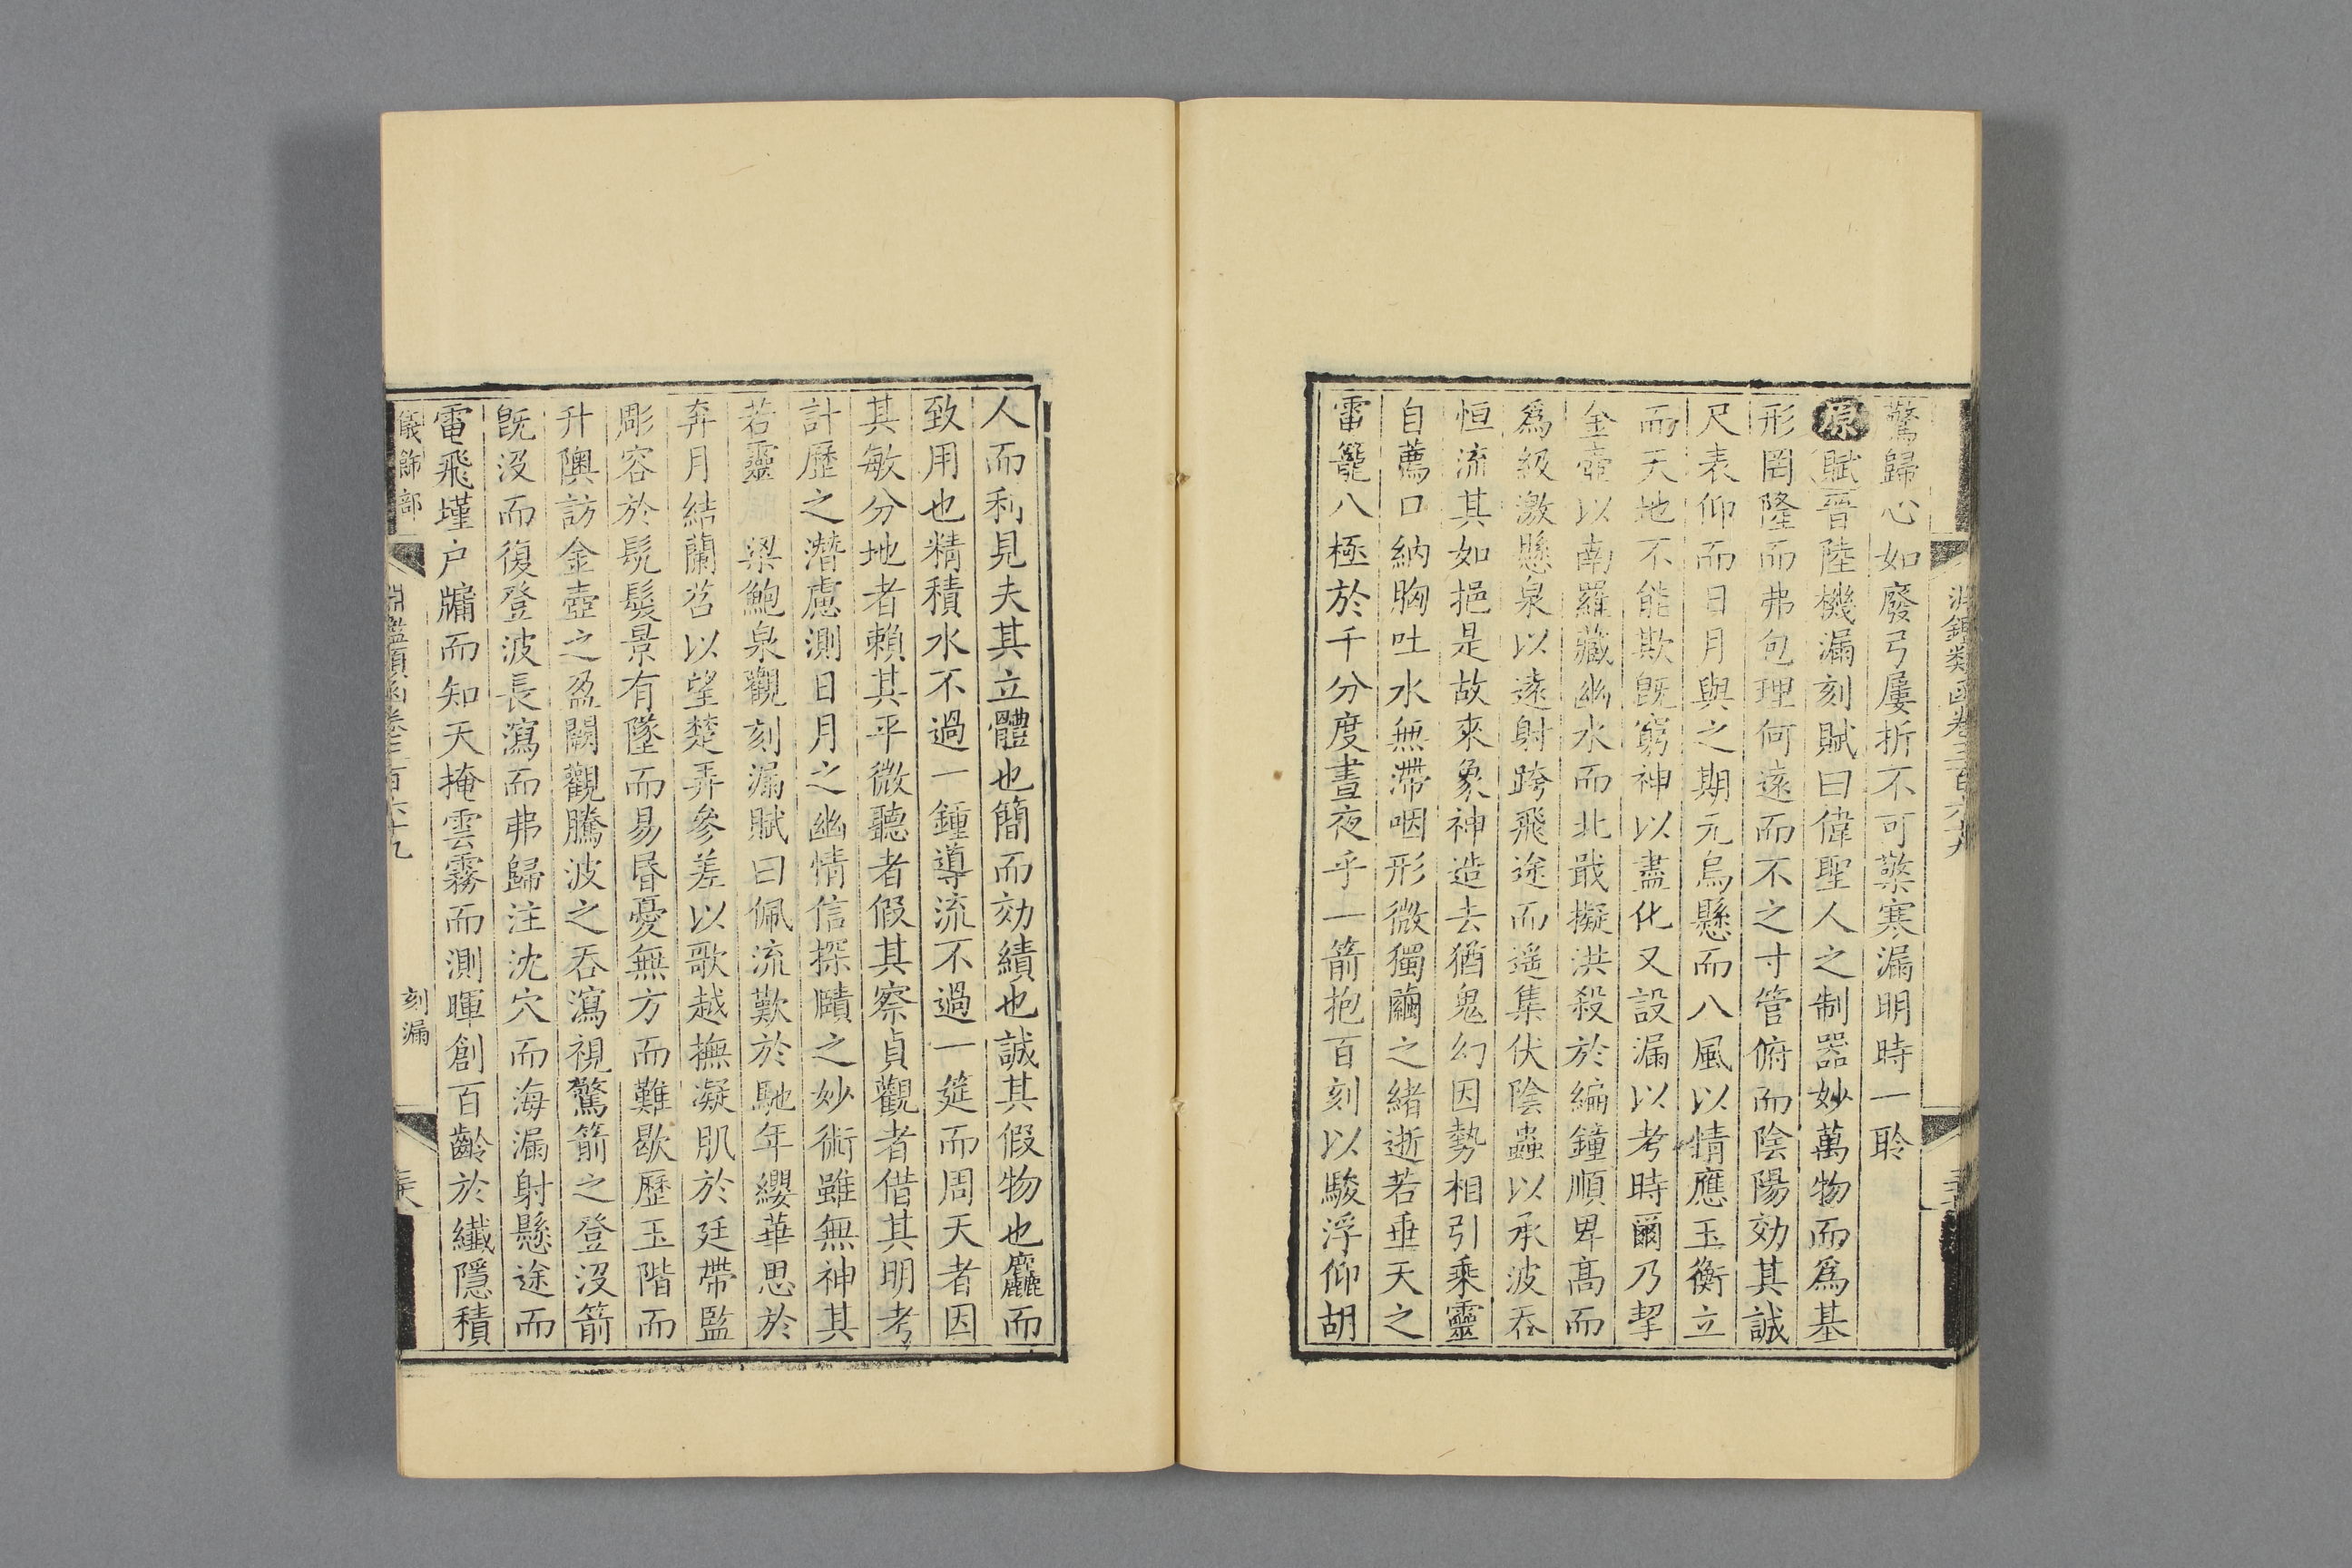 淵鑑類函卷三百六十九
驚歸心如廢弓屢折不可檠寒漏明時一聆
原賦晉陸機漏刻賦曰偉聖人之制器妙萬物而爲基
形罔隆而弗包理何遠而不之寸管俯而陰陽効其誠
尺表仰而日月與之期元鳥懸而八風以情應玉衡立
而天地不能欺旣窮神以盡化又設漏以考時爾乃挈
金壺以南羅藏幽水而北戢擬洪殺於編鐘順卑高而
爲級激懸泉以遠射跨飛途而遥集伏陰蟲以承波吞
恒流其如挹是故來象神造去猶鬼幻因勢相引乘靈
自薦口納胸吐水無滯咽形微獨繭之緒逝若垂天之
雷籠八極於千分度晝夜乎一箭抱百刻以駿浮仰胡
人而利見夫其立體也簡而効績也誠其假物也麤而
致用也精積水不過一鍾導流不過一筳而周天者因
其敏分地者賴其平微聽者假其察貞觀者借其明考
計歷之潛慮測日月之幽情信探賾之妙術雖無神其
若靈 梁鮑泉觀刻漏賦曰佩流歎於馳年纓華思於
奔月結蘭苕以望楚弄參差以歌越撫凝肌於廷帶監
彫容於髡髮景有墜而易昬憂無方而難歇歷玉階而
升隩訪金壺之盈闕觀騰波之吞瀉視驚箭之登沒箭
旣沒而復登波長瀉而弗歸注沈穴而海漏射懸途而
電飛墐户牖而知天掩雲霧而測暉創百齡於纎隱積
儀飾部 淵鑑類函卷三百六十九 刻漏